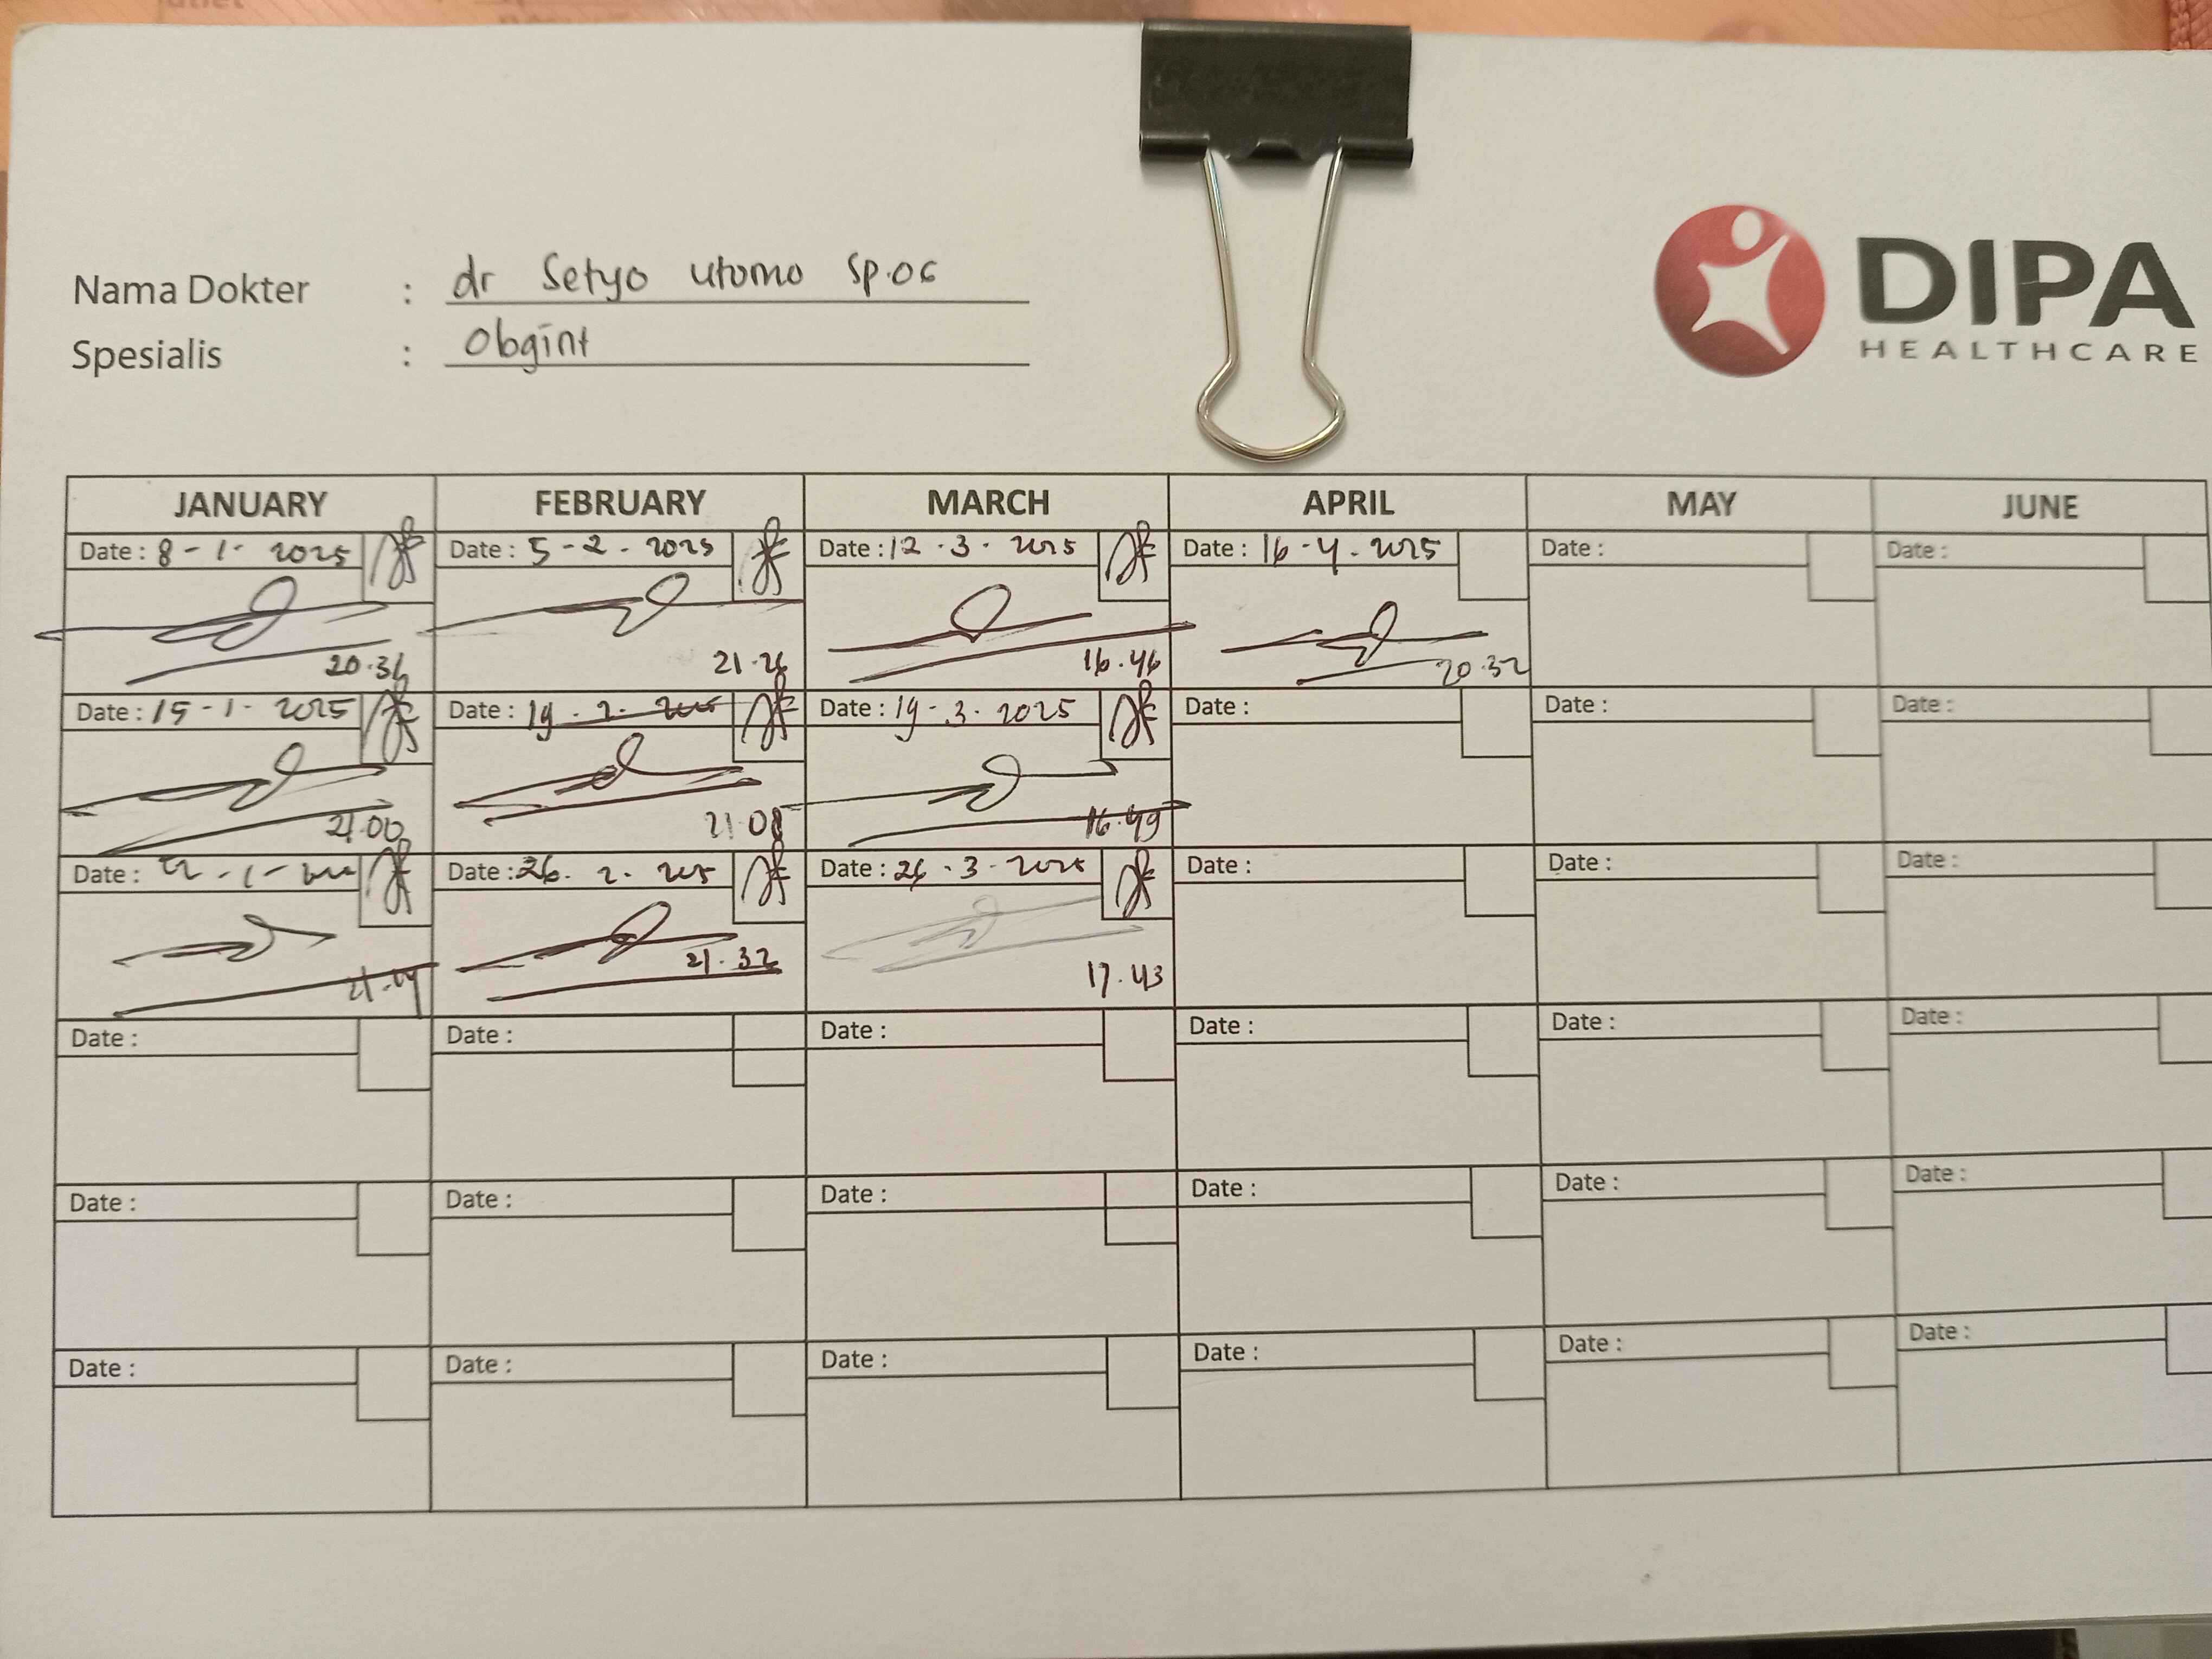 Nama Dokter : dr Setyo utomo SP.OG
Spesialis : Obgint
DIPA
HEALTHCARE
JANUARY FEBRUARY MARCH APRIL MAY JUNE
Date : 8 - 1 - 2025 Date : 5 - 2 - 2025 Date : 12 . 3 . 2025 Date : 16 - 4 . 2025 Date : Date :
20.36 21.26 16.46 20.32
Date : 15 - 1 - 2025 Date : 19 - 2 - 2025 Date : 19 - 3 . 2025 Date : Date : Date :
21.00 21.08 16.49
Date : 22 - 1 - Date : 26 . 2 . 2025 Date : 26 . 3 - 2025 Date : Date : Date :
21.32 17.43
Date : Date : Date : Date : Date : Date :
Date : Date : Date : Date : Date : Date :
Date : Date : Date : Date : Date : Date :